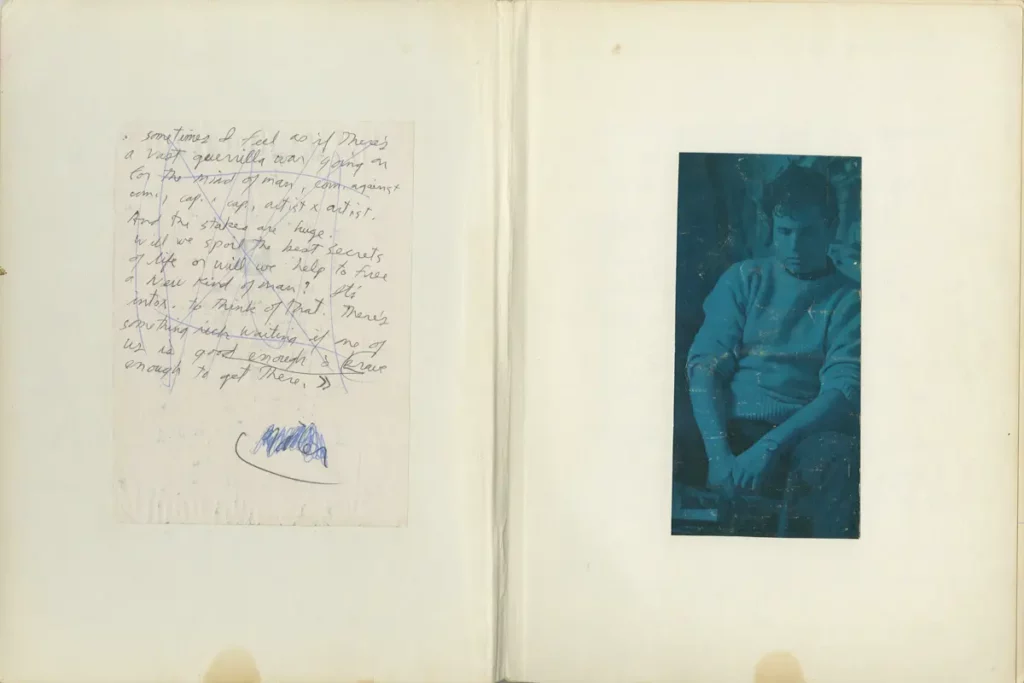 . sometimes I feel as if There's
a vast guerrilla war going on
for the mind of man, com. against
com., cap. × cap, artist × artist.
And the stakes are huge.
Will we spoil the best secrets
of life or will we help to free
a New kind of man? It's
intox. to think of that. There's
something rich waiting if one of
us is good enough & brave
enough to get There. »